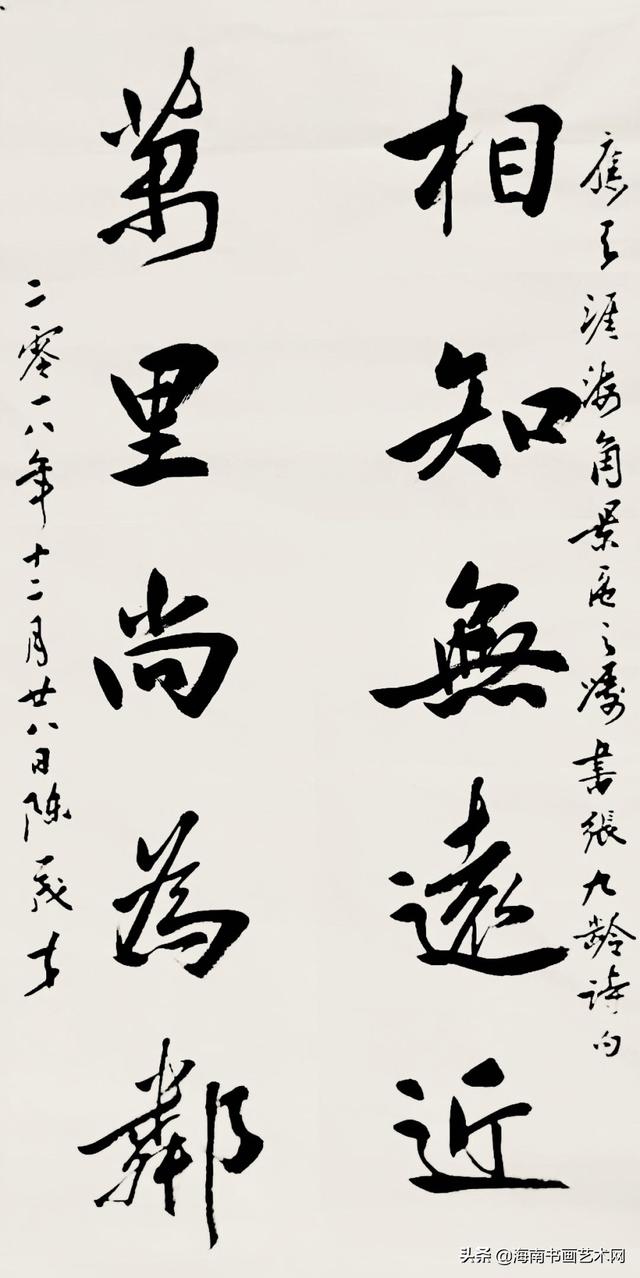 應天涯海角景區之囑書張九齡詩句
相知無遠近
萬里尚為鄰
二零一八年十二月廿八日陳
头条 @海南书画艺术网